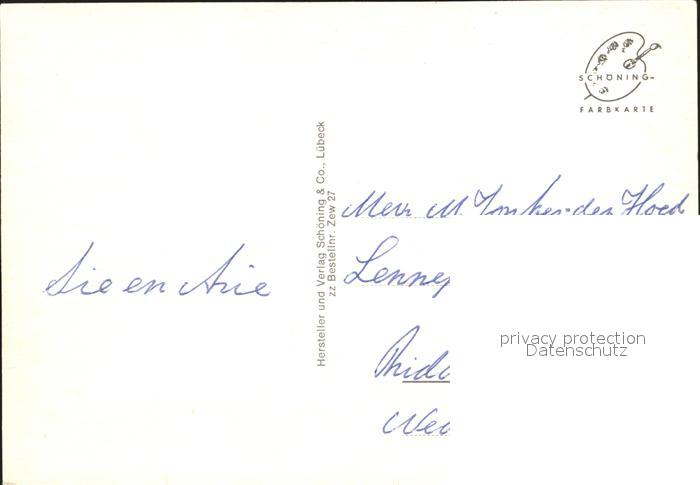 SCHÖNING-
FARBKARTE
Hersteller und Verlag Schöning & Co., Lübeck
zz Bestellnr. Zew 27
Mevr M den Hoed
Lennep
Sie en Arie
privacy protection
Datenschutz